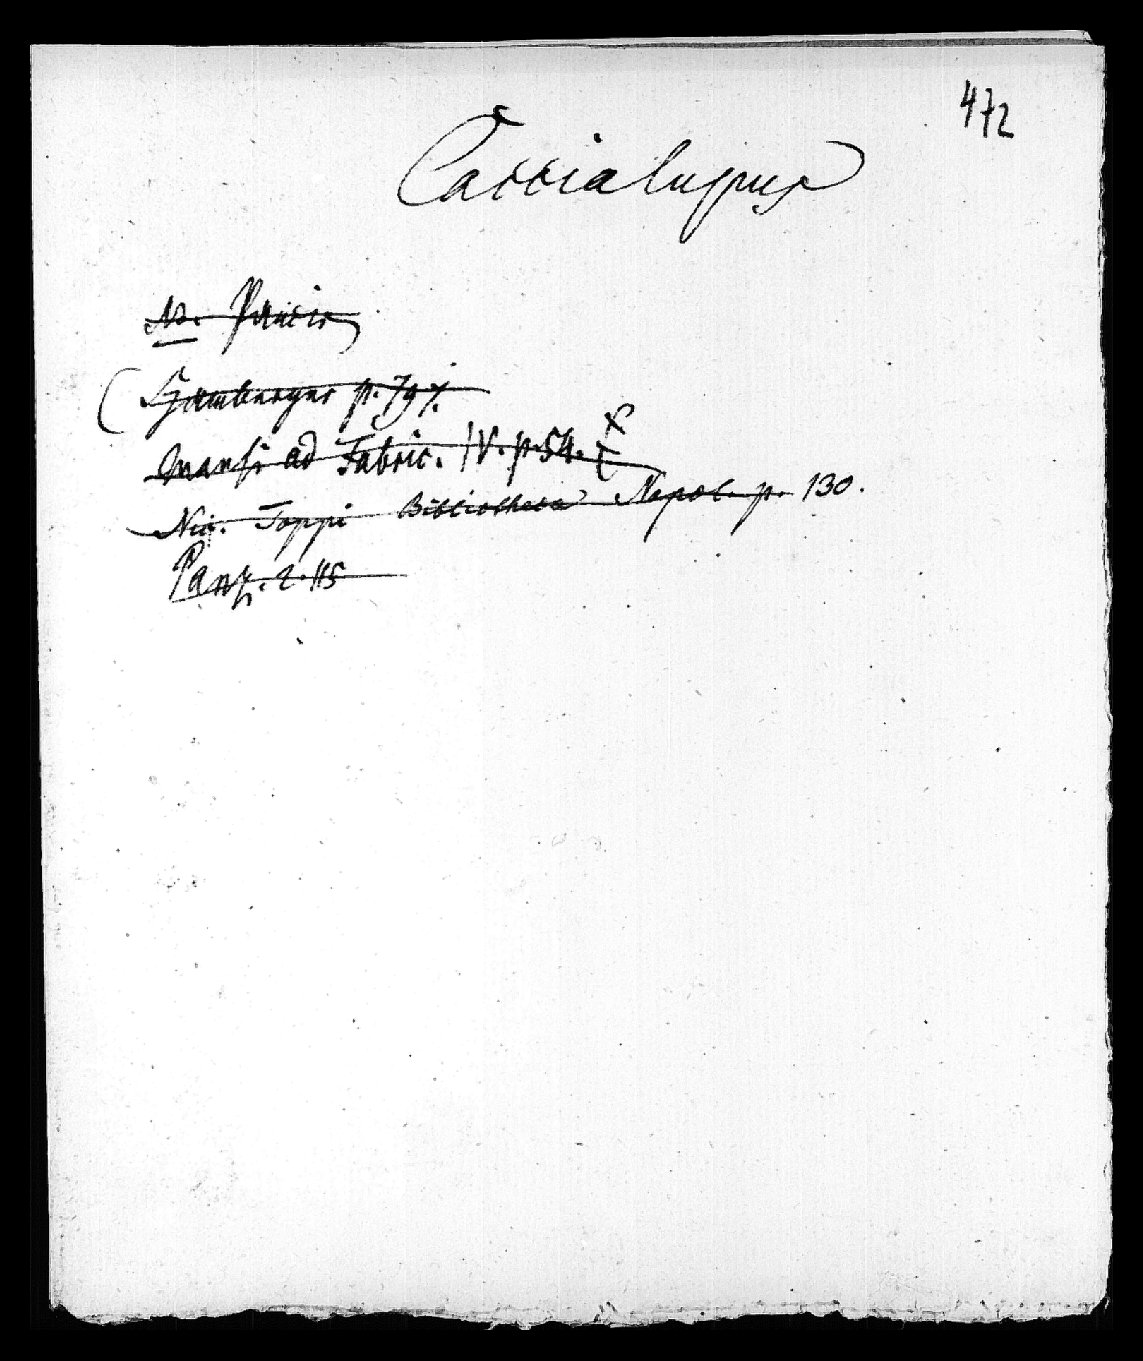 472
Caccialupus
NB. Pancir
(Hamberger p. 797.
Mansi ad Fabric. IV. p. 54.
Nic. Toppi Bibliotheca Napol. p. 130.
Panz. 2. 115